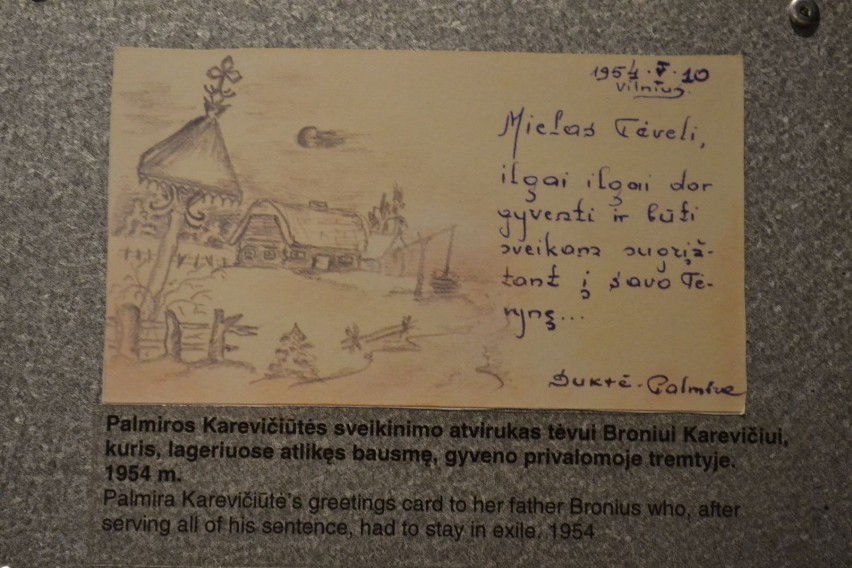 1954.V.10
Vilnius.
Mielas Tėveli,
ilgai ilgai dar
gyventi ir būti
sveikam sugrįž-
tant į savo Tė-
vynę...
Duktė-Palmira
Palmiros Karevičiūtės sveikinimo atvirukas tėvui Broniui Karevičiui,
kuris, lageriuose atlikęs bausmę, gyveno privalomoje tremtyje.
1954 m.
Palmira Karevičiūtė's greetings card to her father Bronius who, after
serving all of his sentence, had to stay in exile. 1954